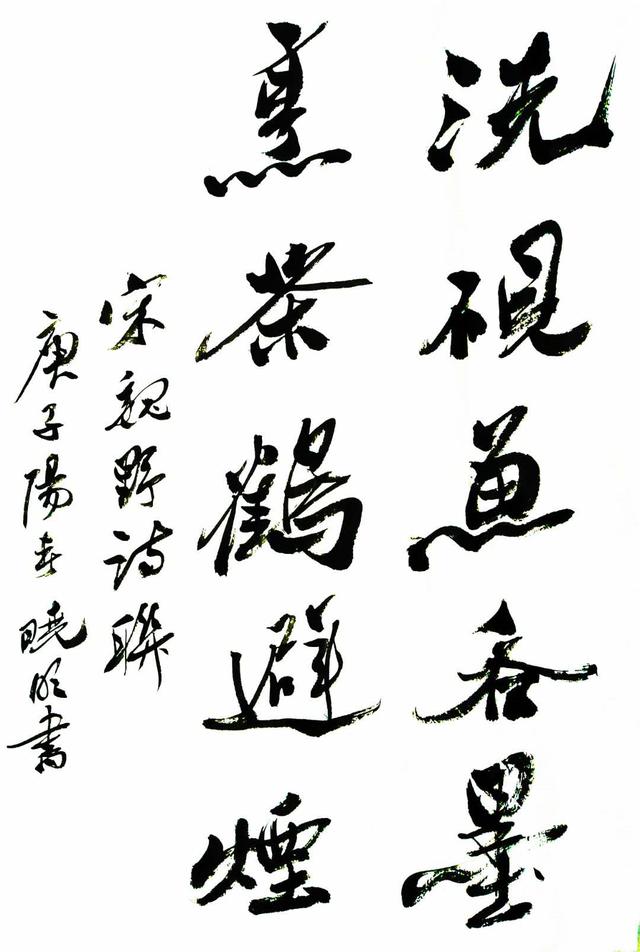 洗硯魚吞墨
烹茶鶴避煙
宋魏野詩聯
庚子陽春曉明書